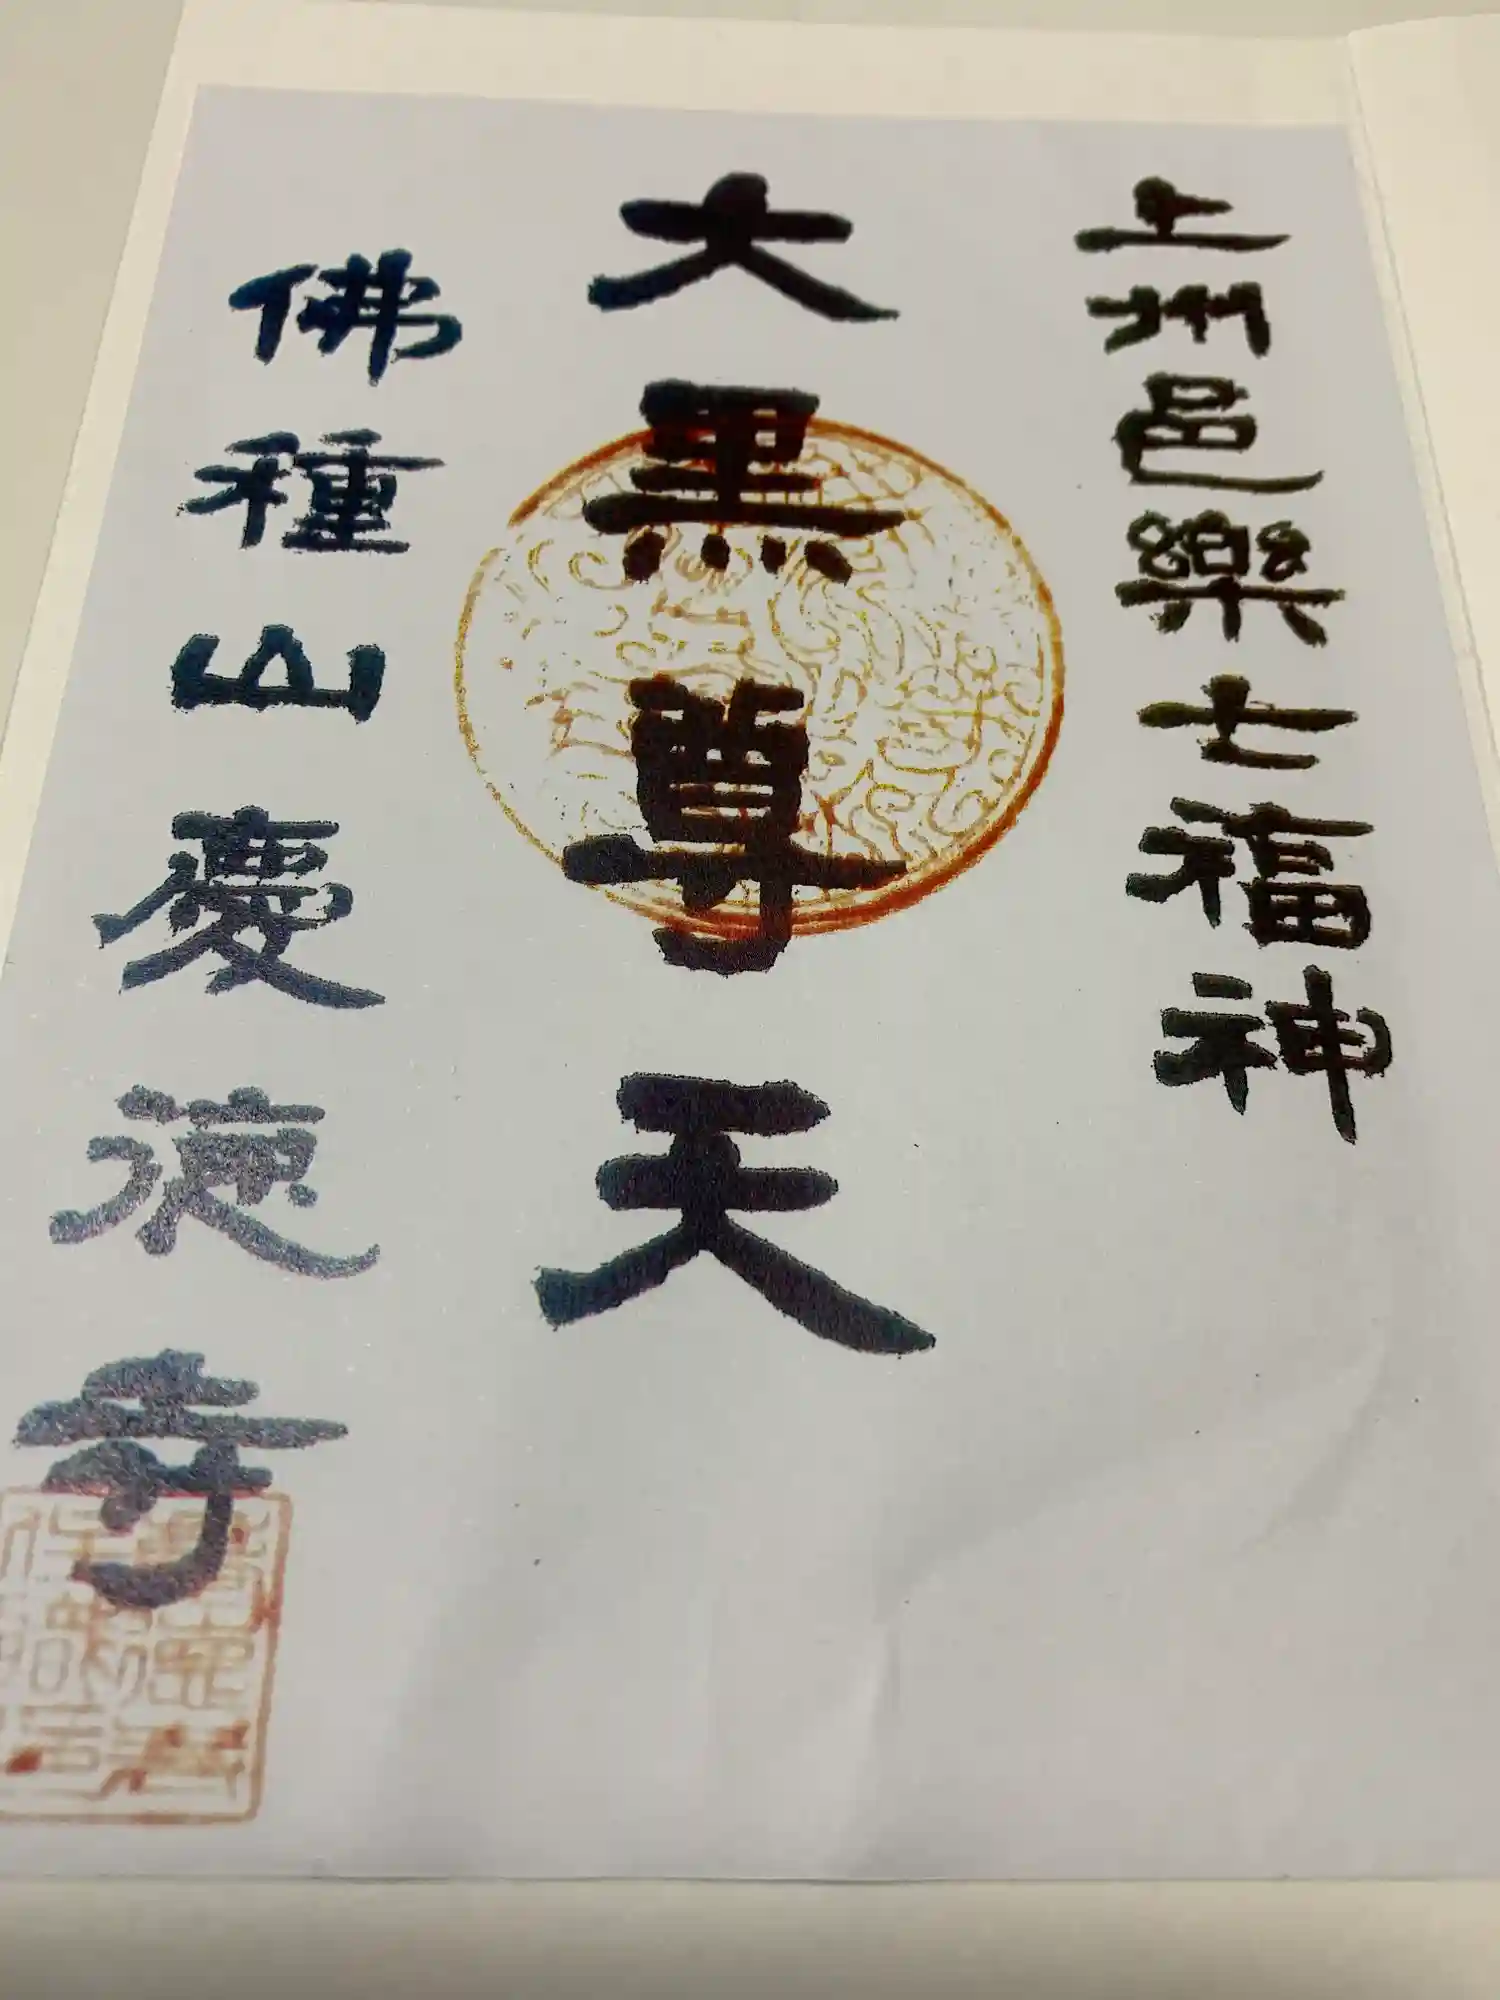 上州邑樂七福神
大黒尊天
佛種山慶徳寺